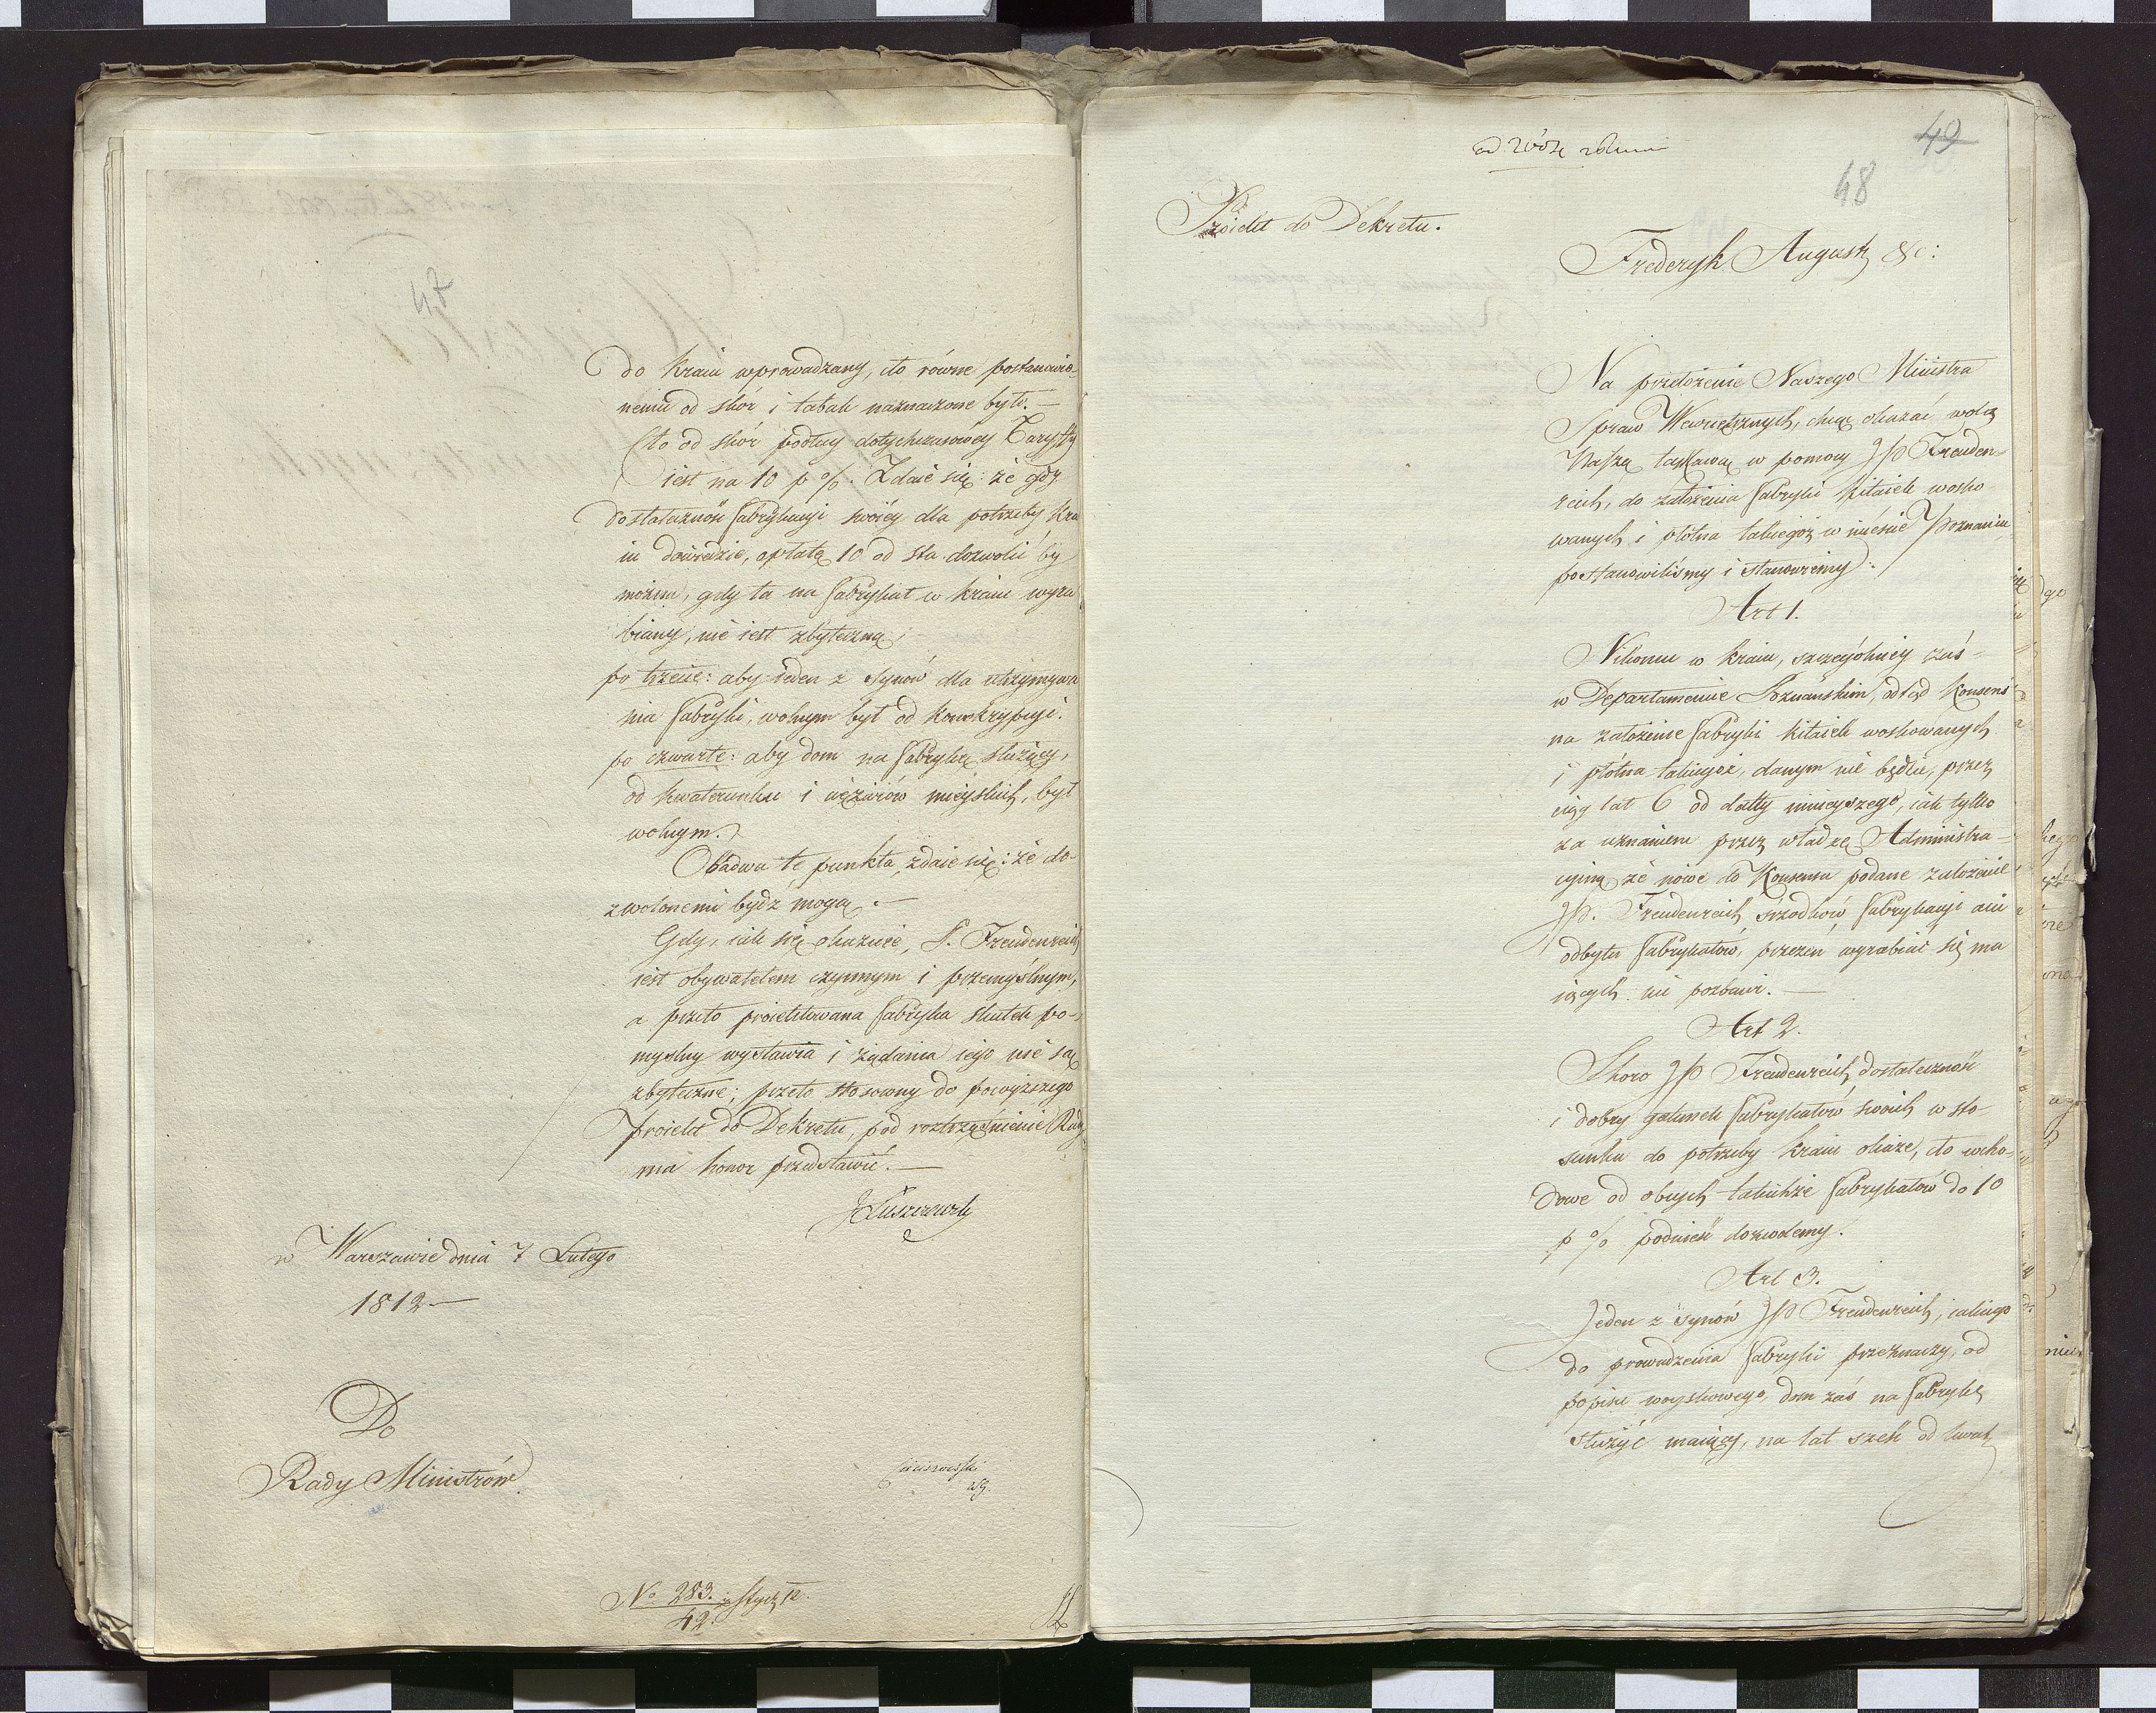 do kraiu wprowadzany, cło równe postanowio-
nemu od skór i tabak naznaczone było. —
Cło od skór podług dotychczasowey Taryffy
iest na 10 p %. Zdaie się: że gdy
dostateczność fabrykacyi swoiey dla potrzeby kra
iu dowiedzie, opłatę 10 od sta dozwolić by
można, gdy ta na fabrykat w kraiu wyra
biany, nie iest zbyteczną;
po trzecie: aby ieden z synów dla utrzymywa
nia fabryki, wolnym był od konskrypcyi.
po czwarte: aby dom na fabrykę służący,
od kwaterunku i ciężarów mieyskich, był
wolnym.
Obadwa te punkta, zdaie się: że do-
zwolonemi bydź mogą. —
Gdy, iak się okazuie, P. Freudenreich
iest obywatelem czynnym i przemyślnym,
a przeto proiektowana fabryka skutek po-
myslny wystawia i żądania iego nie są
zbyteczne; przeto stosowny do powyższego
proiekt do Dekretu, pod roztrząśnienie Rady
ma honor przedstawić. —
JŁuszczewski
w Warszawie dnia 7 Lutego
1812 —
Do
Rady Ministrów.
No 283. Stycz 12.
42.
47
49
48
Proiekt do Dekretu.
Frederyk August &c:
Na przełożenie Naszego Ministra
Spraw Wewnętrznych, chcąc okazać wolą
Naszą łaskawą w pomocy JP Freuden-
reich, do założenia fabryki kitaiek wosko-
wanych i płótna takiegoż w mieście Poznaniu,
postanowiliśmy i stanowiemy:
Art 1.
Nikomu w kraiu, szczególniey zaś
w Departamencie Poznańskim, odtąd konsens
na założenie fabryki kitaiek woskowanych
i płótna takiegoż, danym nie będzie, przez
ciąg lat 6 od datty ninieyszego, iak tylko
za uznaniem przez władzę Administra-
cyiną że nowe do konsensu podane założenie
JP. Freudenreich srzodków fabrykacyi ani
odbytu fabrykatów, przezeń wyrabiać się ma
iących nie pozbawi. —
Art 2.
Skoro JP Freudenreich dostateczność
i dobry gatunek fabrykatów swoich w sto-
sunku do potrzeby kraiu okaże, cło wcho-
dowe od obcych takichże fabrykatów do 10
p % podnieść dozwolemy.
Art 3.
Jeden z synów JP Freudenreich, iakiego
do prowadzenia fabryki przeznaczy, od
popisu woyskowego, dom zaś na fabrykę
służyć maiący, na lat sześć od kwat